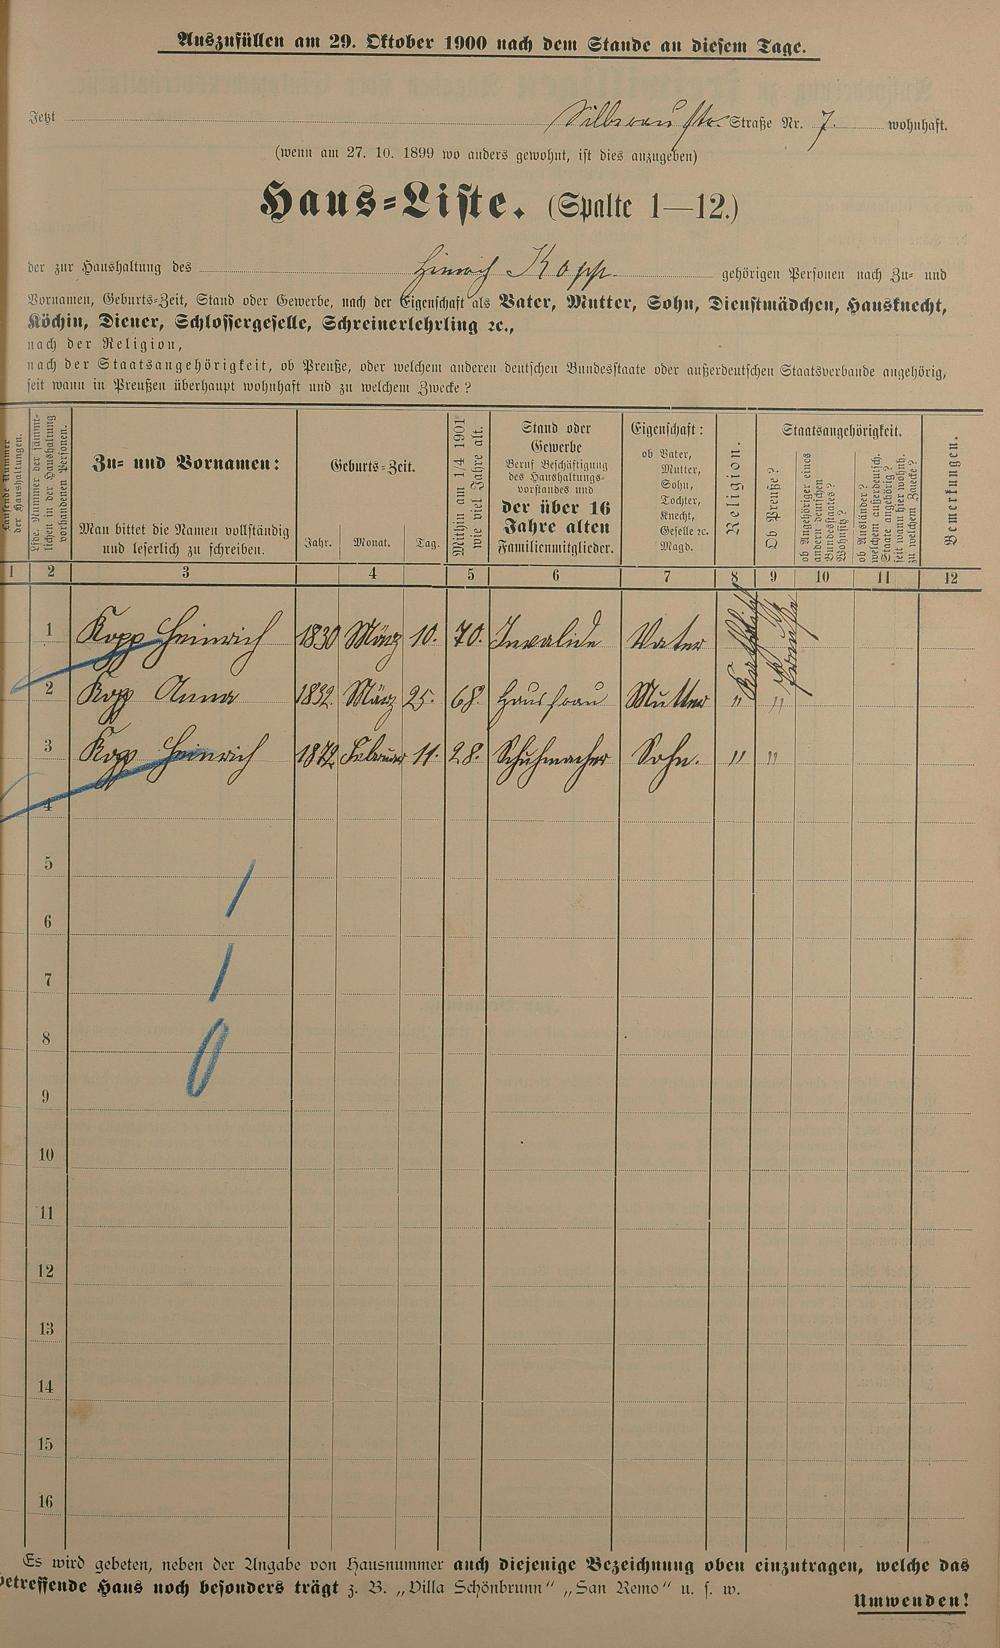 Auszufüllen am 29. Oktober 1900 nach dem Stande an diesem Tage.
Jetzt Silberau str. Straße Nr. 7. wohnhaft.
(wenn am 27. 10. 1899 wo anders gewohnt, ist dies anzugeben)
Haus-Liste. (Spalte 1—12.)
der zur Haushaltung des Hinrich Kopp gehörigen Personen nach Zu- und
Vornamen, Geburts-Zeit, Stand oder Gewerbe, nach der Eigenschaft als Vater, Mutter, Sohn, Dienstmädchen, Hausknecht,
Köchin, Diener, Schlossergeselle, Schreinerlehrling ꝛc.,
nach der Religion,
nach der Staatsangehörigkeit, ob Preuße, oder welchem anderen deutschen Bundesstaate oder außerdeutschen Staatsverbande angehörig,
seit wann in Preußen überhaupt wohnhaft und zu welchem Zwecke?
Laufende Nummer
der Haushaltungen.
Lfde. Nummer der sämmt-
lichen in der Haushaltung
vorhandenen Personen.
Zu- und Vornamen:
Man bittet die Namen vollständig
und leserlich zu schreiben.
Geburts-Zeit.
Jahr. Monat. Tag.
Mithin am 1/4 1901
wie viel Jahre alt.
Stand oder
Gewerbe
Beruf Beschäftigung
des Haushaltungs-
vorstandes und
der über 16
Jahre alten
Familienmitglieder.
Eigenschaft:
ob Vater,
Mutter,
Sohn,
Tochter,
Knecht,
Geselle ꝛc.
Magd.
Religion.
Staatsangehörigkeit.
Ob Preuße?
ob Angehöriger eines
andern deutschen
Bundesstaates?
Wohnsitz?
ob Ausländer?
welchem außerdeutsch.
Staate angehörig?
seit wann hier wohnh.
zu welchem Zwecke?
Bemerkungen.
1 2 3 4 5 6 7 8 9 10 11 12
1 Kopp Heinrich 1830 März 10. 70. Invalide Vater Katholisch Preuße
2 Kopp Anna 1832. März 25. 68. Hausfrau Mutter " "
3 Kopp Heinrich 1872 Februar 11. 28. Schuhmacher Sohn. " "
4
5
6
7
8
9
10
11
12
13
14
15
16
1
1
0
Es wird gebeten, neben der Angabe von Hausnummer auch diejenige Bezeichnung oben einzutragen, welche das
betreffende Haus noch besonders trägt z. B. „Villa Schönbrunn“ „San Remo“ u. s. w.
Umwenden!